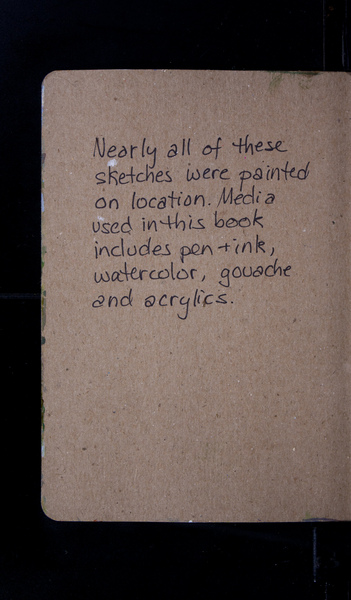 Nearly all of these
sketches were painted
on location. Media
used in this book
includes pen + ink,
watercolor, gouache
and acrylics.